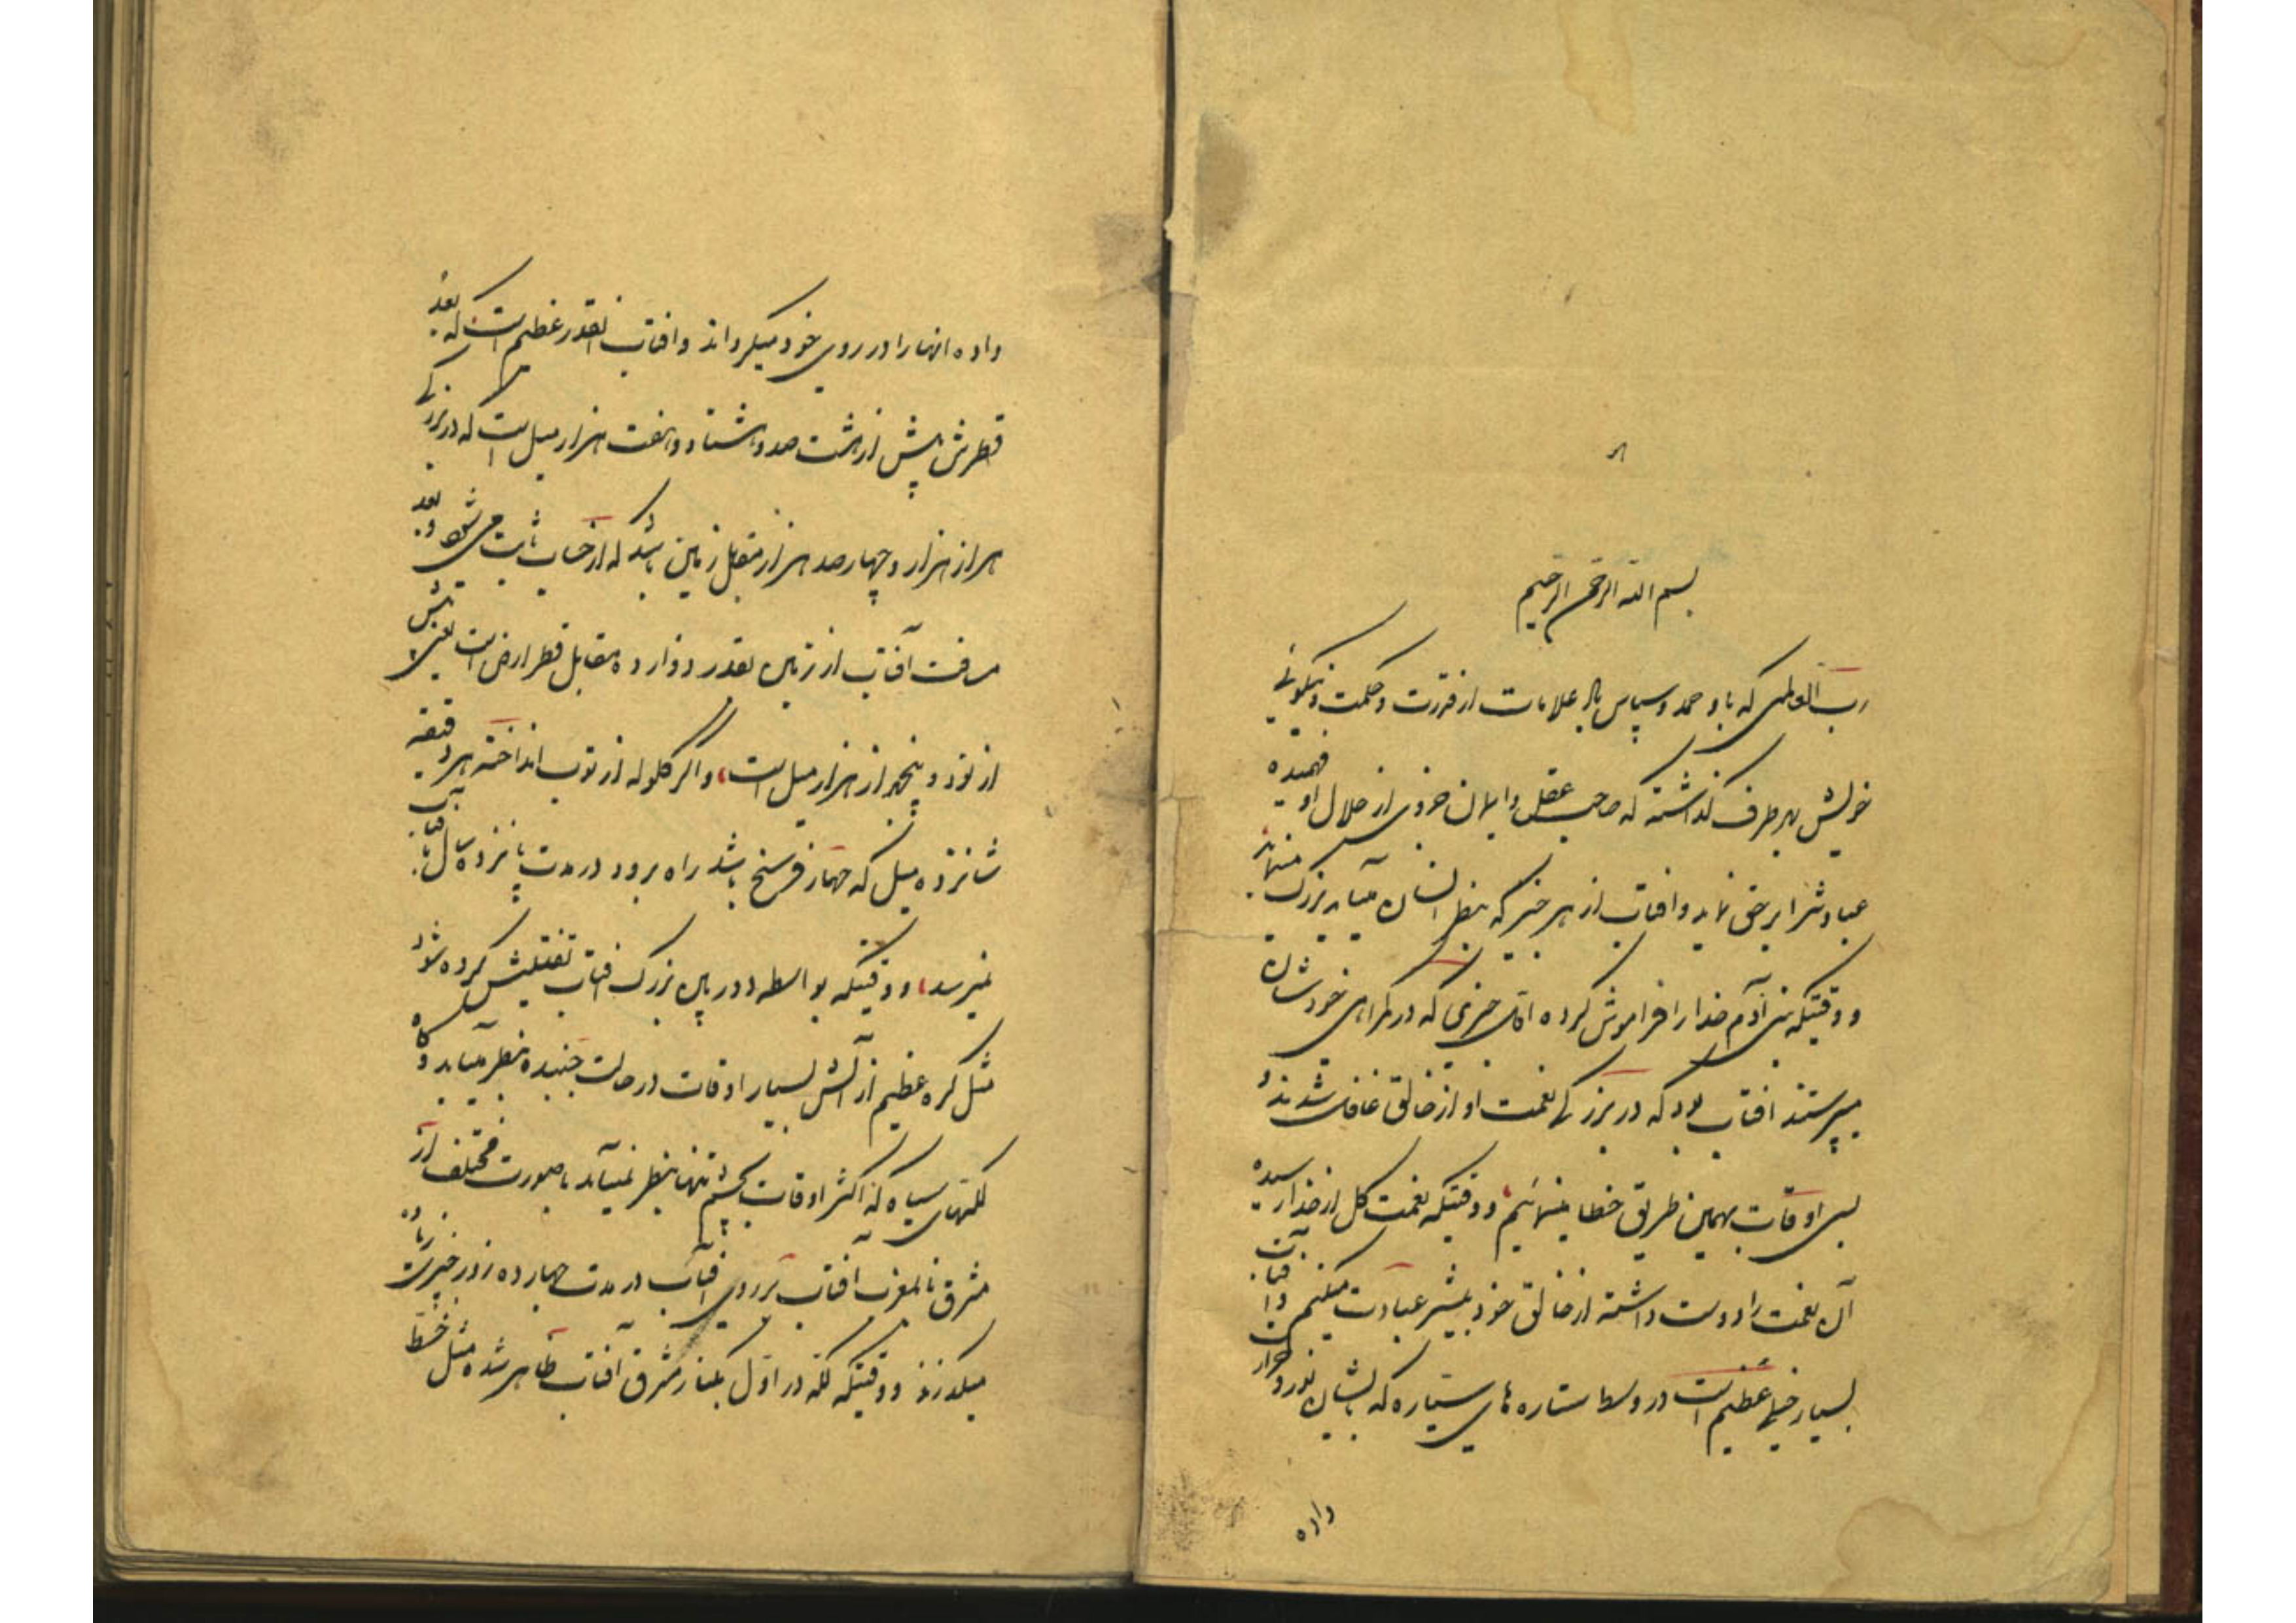 بسم الله الرحمن الرحیم
رب العالمی که باو حمد و سپاس باد علامات از قدرت و حکمت و نیکوئی
خویش بهر طرف گذاشته که صاحب عقل و ایمان خردی از جلال او فهمیده
عبادتش را بر حق نماید و افتاب از هر چیز که بنظر انسان میآید بزرک مینماید
و وقتیکه بنی آدم خدا را فراموش کرده اوّل چیزی که در گمراهی خودشان
میپرستند افتاب بود که در بزرکی نعمت او از خالق غافل شدند
بسی اوقات بهمین طریق خطا مینمائیم و وقتیکه نعمت کل از خدا رسیده
آن نعمت را دوست داشته از خالق خود بیشتر عبادت میکنیم و آفتاب
بسیار خیلی عظیم است در وسط ستاره های سیّاره که بایشان نور و حرارت
داده
داده انها را در روی خود میکرداند و افتاب انقدر عظیم است که بعد
قطرش بیش از هشت صد و هشتاد و هفت هزار میل است که در بزرکی
هزار هزار و چهار صد هزار مقابل زمین باشد که از حساب ثابت می شود و بعد
مسافت آفتاب از زمین بقدر دوازده مقابل قطر ارض است یعنی بیش
از نود و پنج هزار هزار میل است و اگر کلوله از توب انداخته هر دقیقه
شانزده میل که چهار فرسخ باشد راه برود در مدت پانزده سال بآفتاب
نمیرسد و وقتیکه بواسطه دوربین بزرک افتاب تفتیش کرده شود
مثل کره عظیم از آتش بسیار اوقات در حالت جنبیده بنظر میآید و گاه
لکّهای سیاه که اکثر اوقات بچشم تنها بنظر نمیآید بصورت مختلف از
مشرق تا بمغرب افتاب بر روی آفتاب در مدت چهارده روز چیزی زیاده
میکذرند و وقتیکه لکّه در اوّل بکنار مشرق آفتاب ظاهر شده مثل خط